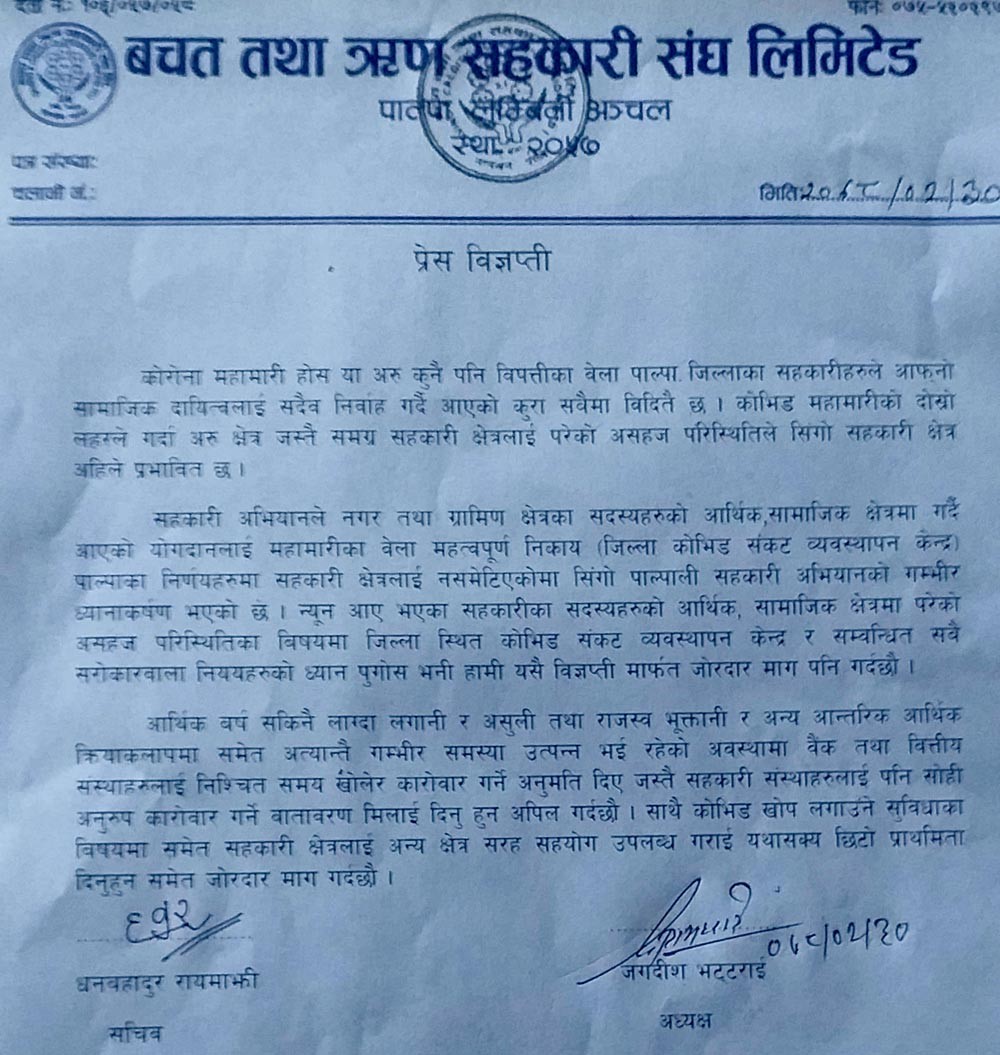 बचत तथा ऋण सहकारी संघ लिमिटेड
पाल्पा लुम्बिनी अञ्चल
स्था. २०५७
पत्र संख्याः
चलानी नं.:
मितिः २०७८/०२/३०
प्रेस विज्ञप्ती
कोरोना महामारी होस या अरु कुनै पनि विपत्तीका वेला पाल्पा जिल्लाका सहकारीहरुले आफ्नो
सामाजिक दायित्वलाई सदैव निर्वाह गर्दै आएको कुरा सवैमा विदितै छ । कोभिड महामारीको दोस्रो
लहरले गर्दा अरु क्षेत्र जस्तै समग्र सहकारी क्षेत्रलाई परेको असहज परिस्थितिले सिगो सहकारी क्षेत्र
अहिले प्रभावित छ ।
सहकारी अभियानले नगर तथा ग्रामिण क्षेत्रका सदस्यहरुको आर्थिक,सामाजिक क्षेत्रमा गर्दै
आएको योगदानलाई महामारीका वेला महत्वपूर्ण निकाय (जिल्ला कोभिड संकट व्यवस्थापन केन्द्र)
पाल्पाका निर्णयहरुमा सहकारी क्षेत्रलाई नसमेटिएकोमा सिंगो पाल्पाली सहकारी अभियानको गम्भीर
ध्यानाकर्षण भएको छ । न्यून आए भएका सहकारीका सदस्यहरुको आर्थिक, सामाजिक क्षेत्रमा परेको
असहज परिस्थितिका विषयमा जिल्ला स्थित कोभिड संकट व्यवस्थापन केन्द्र र सम्वन्धित सवै
सरोकारवाला निययहरुको ध्यान पुगोस भनी हामी यसै विज्ञप्ती मार्फत जोरदार माग पनि गर्दछौ ।
आर्थिक वर्ष सकिनै लाग्दा लगानी र असुली तथा राजस्व भूक्तानी र अन्य आन्तरिक आर्थिक
क्रियाकलापमा समेत अत्यान्तै गम्भीर समस्या उत्पन्न भई रहेको अवस्थामा वैंक तथा वित्तीय
संस्थाहरुलाई निश्चित समय खोलेर कारोवार गर्ने अनुमति दिए जस्तै सहकारी संस्थाहरुलाई पनि सोही
अनुरुप कारोवार गर्ने वातावरण मिलाई दिनु हुन अपिल गर्दछौ । साथै कोभिड खोप लगाउंने सुविधाका
विषयमा समेत सहकारी क्षेत्रलाई अन्य क्षेत्र सरह सहयोग उपलब्ध गराई यथासक्य छिटो प्रार्थामता
दिनुहुन समेत जोरदार माग गर्दछौ ।
०७८/०२/३०
धनवहादुर रायमाझी
जगदीश भट्टराई
सचिव
अध्यक्ष